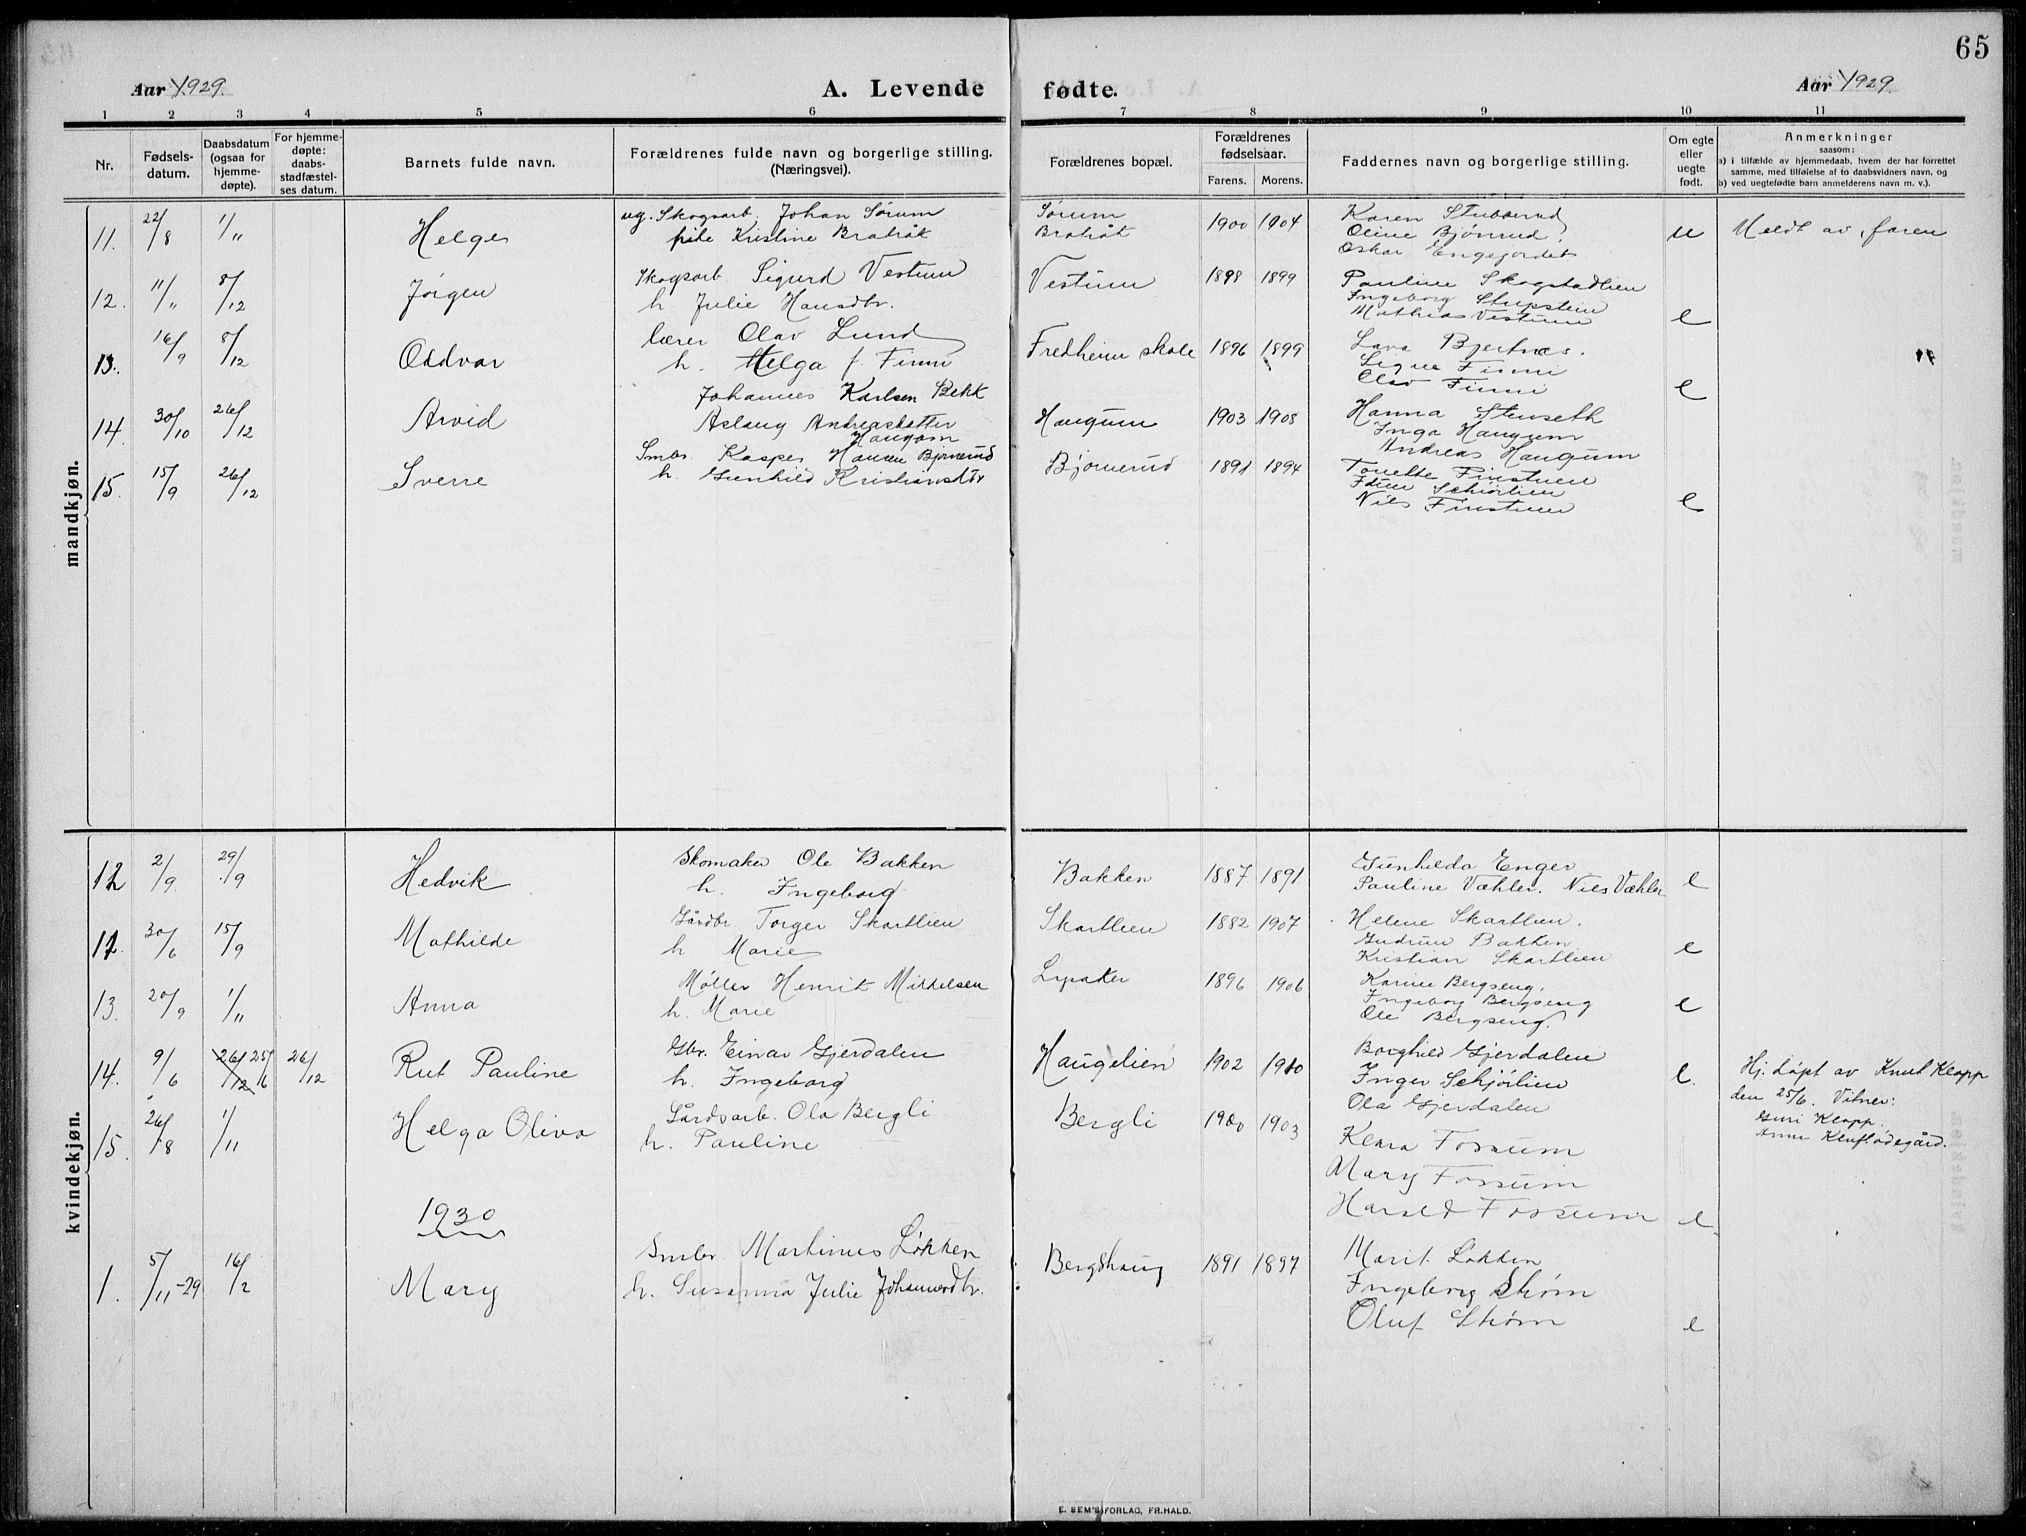 65
Aar 1929.
A. Levende fødte.
Aar 1929
1 2 3 4 5 6 7 8 9 10 11
Nr.
Fødsels-
datum.
Daabsdatum
(ogsaa for
hjemme-
døpte).
For hjemme-
døpte:
daabs-
stadfæstel-
ses datum.
Barnets fulde navn.
Forældrenes fulde navn og borgerlige stilling.
(Næringsvei).
Forældrenes bopæl.
Forældrenes
fødselsaar.
Farens. Morens.
Faddernes navn og borgerlige stilling.
Om egte
eller
uegte
født.
Anmerkninger
saasom:
a) i tilfælde av hjemmedaab, hvem der har forrettet
samme, med tilføielse af to daabsvidners navn, og
b) ved uegtefødte barn anmelderens navn m. v.).
mandkjøn.
11. 22/8 1/11 Helge
ug. Skogsarb. Johan Sørum
pike Kristine Bratråk
Sørum
Bratråk
1900 1904
Karen Stubberud
Oline Bjønrud
Oskar Engejordet
u Meldt av faren
12. 11/11 8/12 Jørgen
Skogsarb Sigurd Vestum
h. Julie Hansdtr.
Vestum 1898 1899
Pauline Skogstadlien
Ingeborg
Mathias Vestum
e
13. 16/9 8/12 Oddvar
lærer Olav Lund
h. Helga f. Finni
Fredheim skole 1896 1899
Lava Bjertnæs.
Signe Finni
Olav Finni
e
14. 30/10 26/12 Arvid
Johannes Karlsen Bekk
Aslaug Andreasdatter
Haugom
Haugum 1903 1905
Hanna Stenseth
Inga Haugum
Andreas Haugum
15. 15/9 26/12 Sverre
Smbr. Kasper Hansen Bjørnerud
h. Gunhild Kristiansdtr
Bjørnerud 1891 1894
Tonette Finstuen
Schiørlien
Nils Finstuen
e
kvindekjøn.
12 2/9 29/9 Hedvik
Skomaker Ole Bakken
h. Ingeborg
Bakken 1887 1891
Gunhilda Enger
Pauline Væhler. Nils Væhler
e
12. 30/6 15/9 Mathilde
Gårdbr. Torger Skartlien
h Marie
Skartlien 1882 1907
Helene Skartlien.
Gudrun Bakken
Kristian Skartlien
e
13. 20/9 1/11 Anna
Møller Henrik Mikkelsen
h. Marie
Lysaker 1896 1906
Karine Bergseng.
Ingeborg Bergseng
Ole Bergseng.
e
14. 9/6 26/12 25/6 26/12 Rut Pauline
Gbr. Einar Gjerdalen
h. Ingeborg
Haugelien 1902 1910
Borghild Gjerdalen
Inger Schjørlien
Ola Gjerdalen
e.
Hj. døpt av Knut Klopp
den 25/6. Vitner:
Guri Klopp.
15. 26/8 1/11 Helga Oliva
Gårdsarb. Ola Bergli
h. Pauline
Bergli 1900 1903
Klara Fossum
Mary Fossum
Harald Fossum
e
1930
1. 5/11-29 16/2 Mary
Smbr. Martinus Løkken
h. Susanna Julie Johannesdtr.
Bergshaug 1891 1897
Marit Løkken
Ingeborg Strøm
Oluf Strøm
e
E. SEM'S FORLAG, FR.HALD.